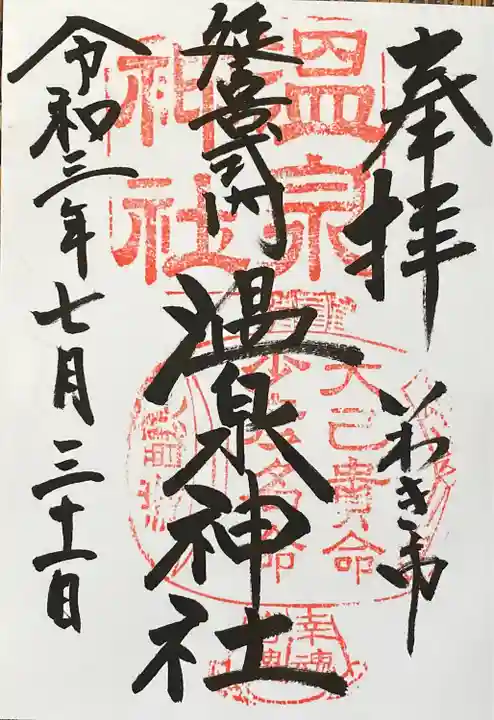 奉拝
いわき市
延喜式内
温泉神社
令和三年七月三十一日
温泉
神社
大己貴命
少彦名命
幸魂